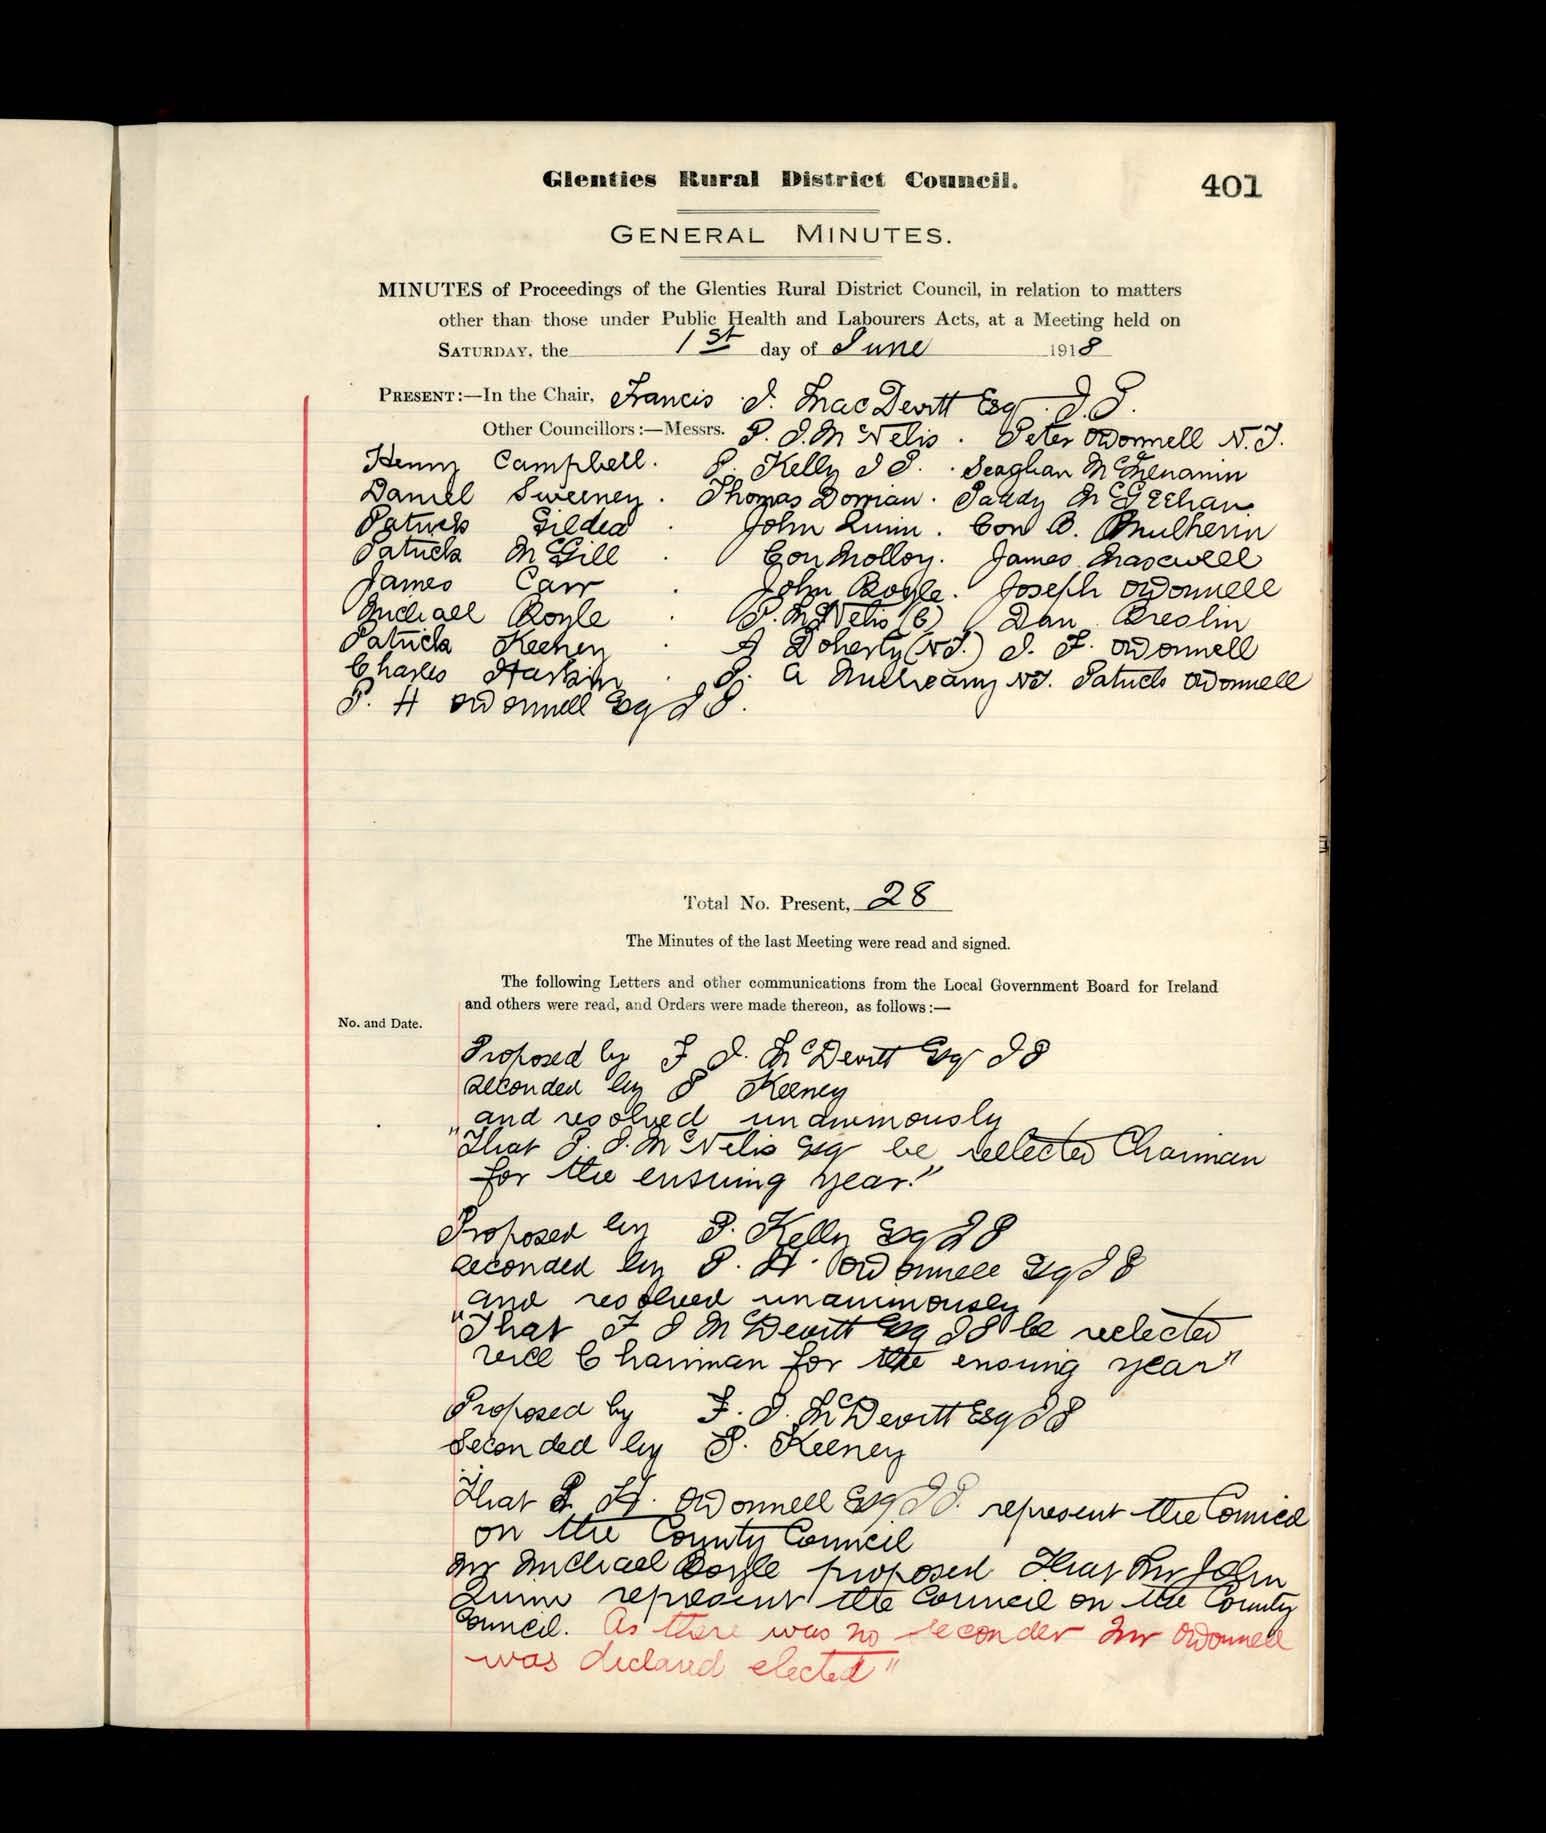 Glenties Rural District Council.
401
GENERAL MINUTES.
MINUTES of Proceedings of the Glenties Rural District Council, in relation to matters
other than those under Public Health and Labourers Acts, at a Meeting held on
SATURDAY, the 1st day of June 1918
PRESENT:—In the Chair, Francis J. MacDevitt Esq. J.P.
Other Councillors:—Messrs. P. J. McNelis. Peter O'Donnell N.T.
Henry Campbell. P. Kelly J P. Seaghan McMenamin
Daniel Sweeney. Thomas Dorrian. Paddy McGeehan
Patrick Gildea. John Quinn. Con B. Mulherin
Patrick McGill. Con Molloy. James Maxwell
James Carr. John Boyle. Joseph O'Donnell
Michael Boyle. P. McNelis (C) Dan Breslin
Patrick Keeney. A Doherty (N.T.) J. F. O'Donnell
Charles Harkin. P. A Mulreany N.T. Patrick O'Donnell
P. H O'Donnell Esq J P.
Total No. Present, 28
The Minutes of the last Meeting were read and signed.
The following Letters and other communications from the Local Government Board for Ireland
and others were read, and Orders were made thereon, as follows:—
No. and Date.
Proposed by F J. McDevitt Esq J P
seconded by P Keeney
and resolved unanimously
"That P. J. McNelis Esq be reelected Chairman
for the ensuing year."
Proposed by P. Kelly Esq J P
seconded by P. H. O'Donnell Esq J P
and resolved unanimously
"That F J McDevitt Esq J P be reelected
vice Chairman for the ensuing year"
Proposed by F. J. McDevitt Esq J P
Seconded by P. Keeney
"That P. H. O'Donnell Esq J P. represent the Council
on the County Council
Mr Michael Boyle proposed That Mr John
Quinn represent the Council on the County
Council. As there was no seconder Mr O'Donnell
was declared elected"